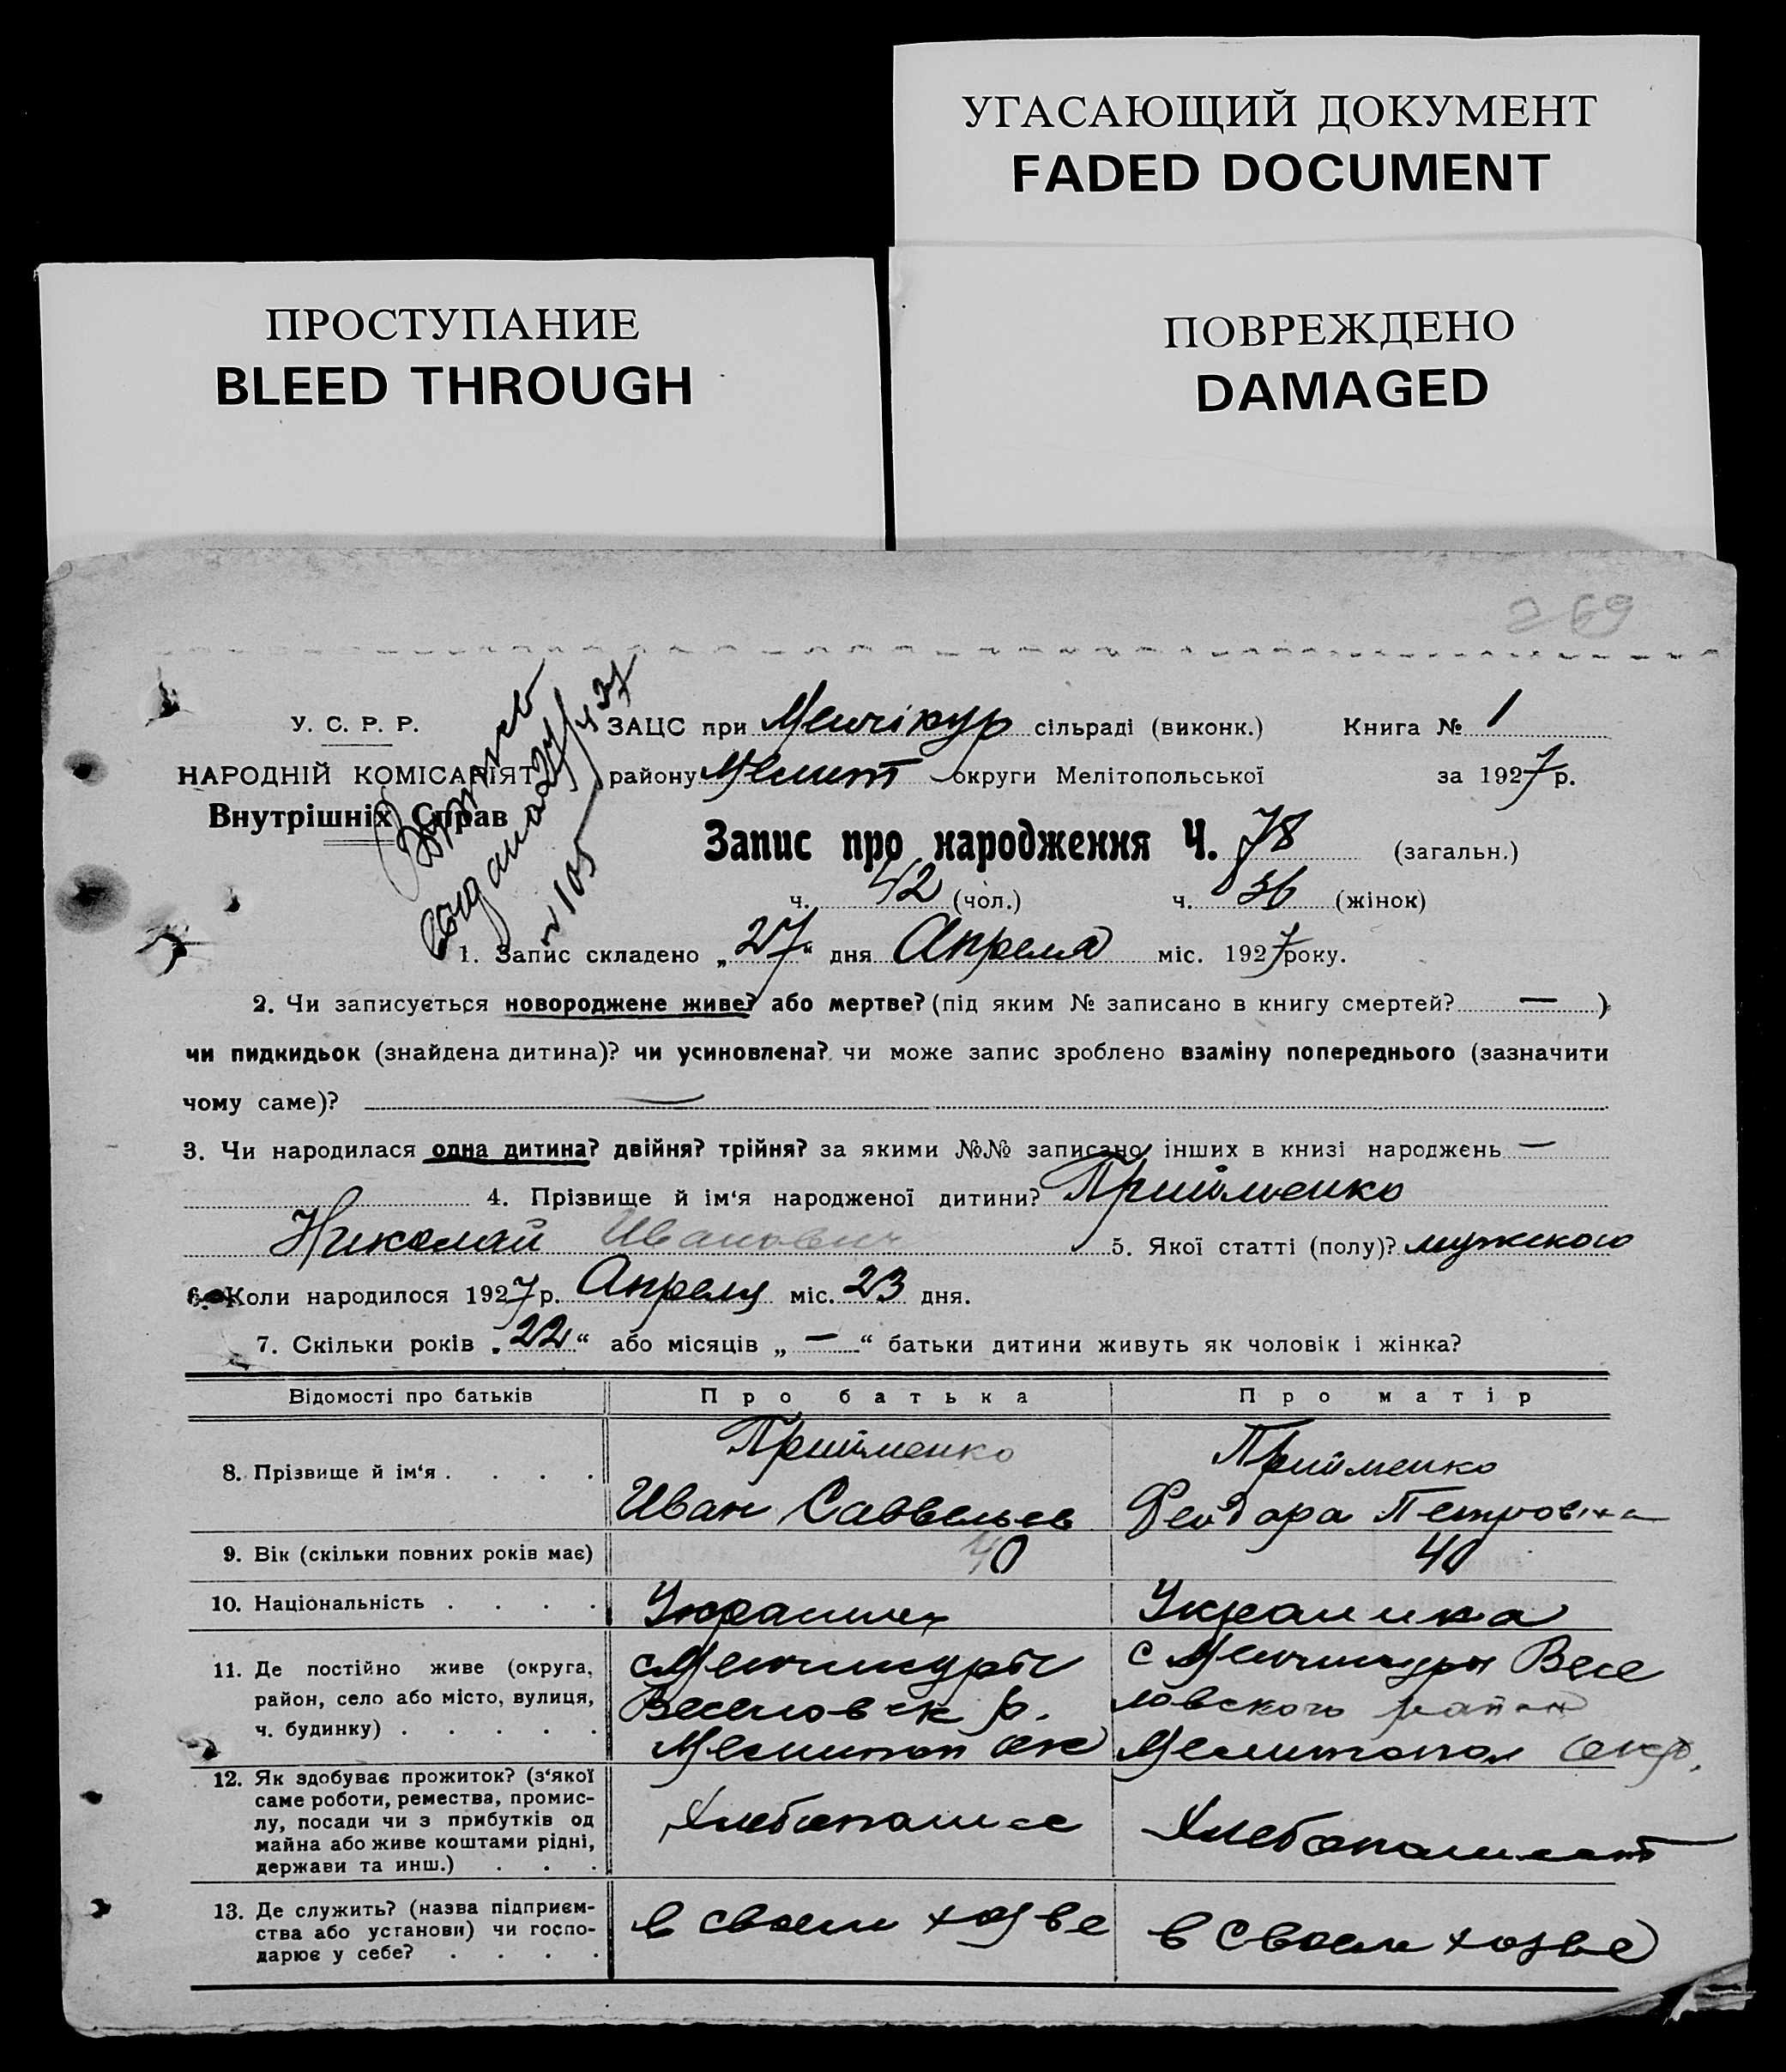 УГАСАЮЩИЙ ДОКУМЕНТ
FADED DOCUMENT
ПРОСТУПАНИЕ
BLEED THROUGH
ПОВРЕЖДЕНО
DAMAGED
269
У. С. Р. Р.
НАРОДНІЙ КОМІСАРІЯТ
Внутрішніх Справ
№ 105
ЗАЦС при Менчікур сільраді (виконк.) Книга № 1
району Мелит округи Мелітопольської за 1927 р.
Запис про народження Ч. 78 (загальн.)
ч. 42 (чол.) ч. 36 (жінок)
1. Запис складено „27“ дня Апреля міс. 1927 року.
2. Чи записується новороджене живе? або мертве? (під яким № записано в книгу смертей? — )
чи пидкидьок (знайдена дитина)? чи усиновлена? чи може запис зроблено взаміну попереднього (зазначити
чому саме)? —
3. Чи народилася одна дитина? двійня? трійня? за якими №№ записано інших в книзі народжень —
4. Прізвище й ім‘я народженої дитини? Прийменко
Николай Иванович 5. Якої статті (полу)? мужского
6. Коли народилося 1927 р. Апреля міс. 23 дня.
7. Скільки років „22“ або місяців „—“ батьки дитини живуть як чоловік і жінка?
Відомості про батьків Про батька Про матір
8. Прізвище й ім‘я . . . . Прийменко Прийменко
Иван Саввельев Феодора Петровна
9. Вік (скільки повних років має) 40 40
10. Національність . . . . Украинец Украинка
11. Де постійно живе (округа, район, село або місто, вулиця, ч. будинку) . . . . .
с Менчикуры
Веселовск р.
Мелитоп ок
с Менчикуры Весе
ловского район
Мелитопол окр.
12. Як здобуває прожиток? (з‘якої
саме роботи, ремества, промис-
лу, посади чи з прибутків од
майна або живе коштами рідні,
держави та инш.) . . .
Хлебопашес
Хлебопашест
13. Де служить? (назва підприєм-
ства або установи) чи госпо-
дарює у себе? . . . .
в своем хозве
в своем хозве